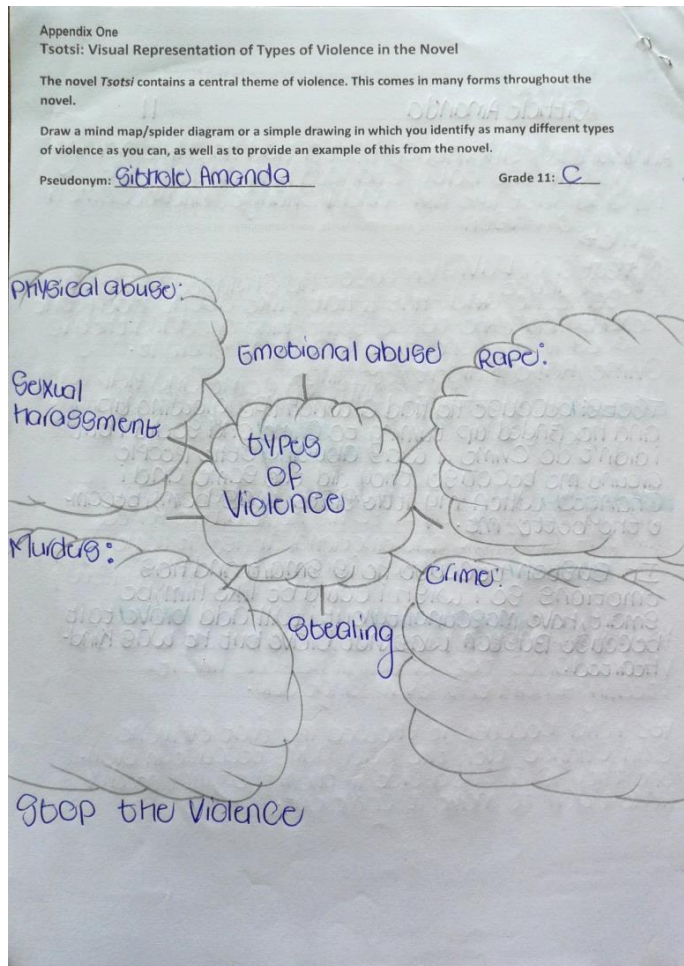 Appendix One
Tsotsi: Visual Representation of Types of Violence in the Novel
The novel Tsotsi contains a central theme of violence. This comes in many forms throughout the
novel.
Draw a mind map/spider diagram or a simple drawing in which you identify as many different types
of violence as you can, as well as to provide an example of this from the novel.
Pseudonym: Sibhole Amanda Grade 11: C
Physical abuse:
Emotional abuse
Rape:
Sexual
harassment
types
of
Violence
Murders:
Crime:
Stealing
Stop the Violence